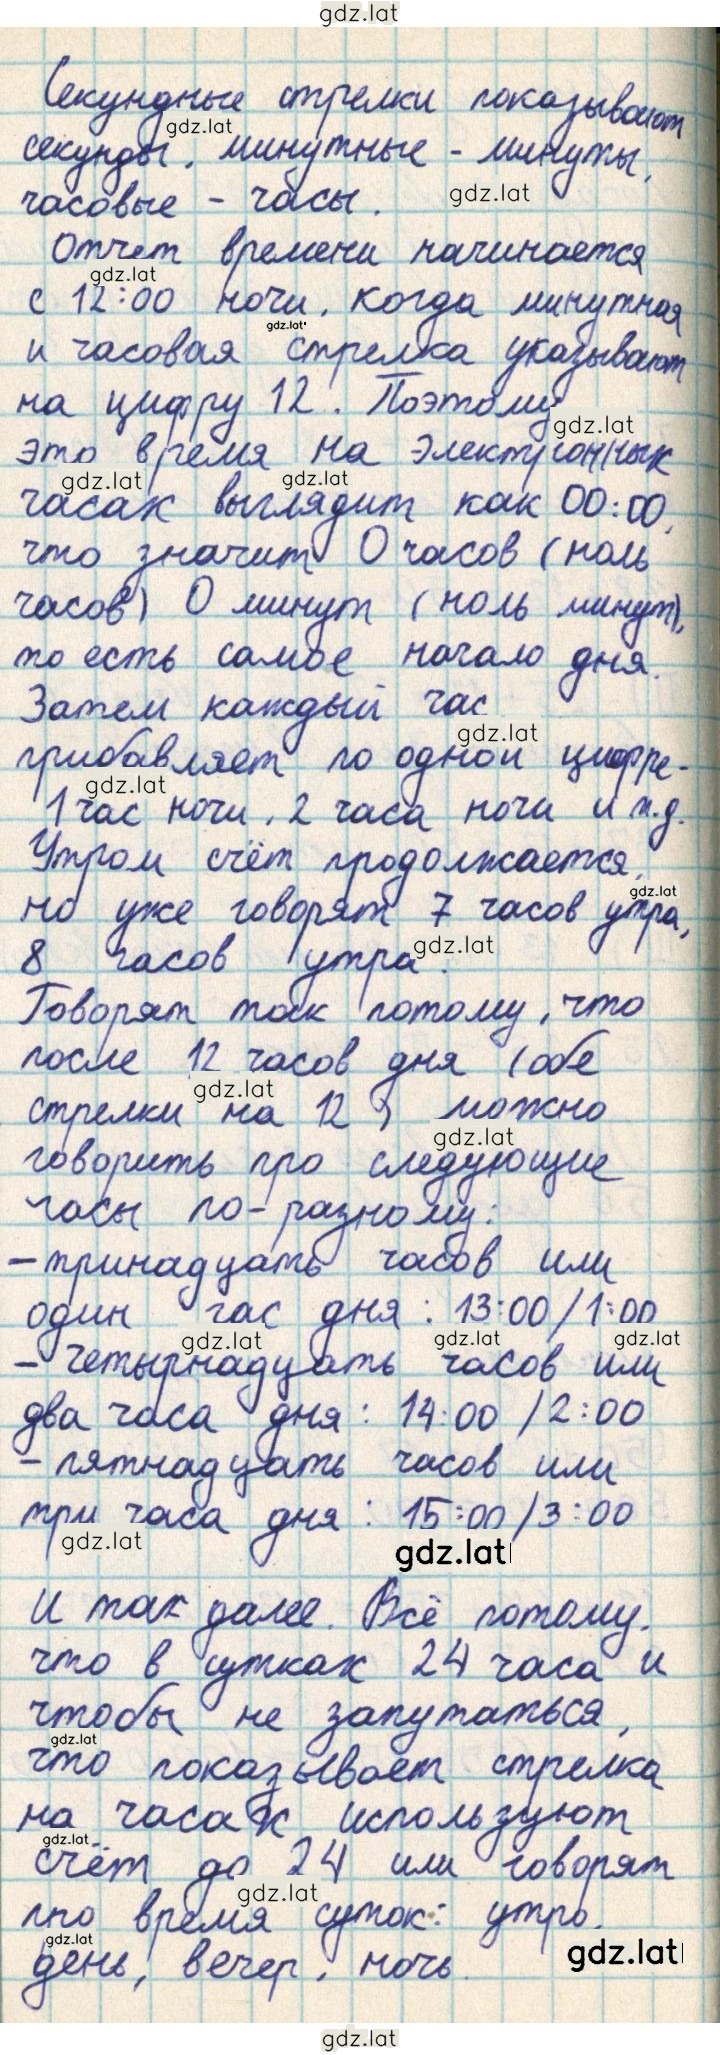 gdz.lat
Секундные стрелки показывают
gdz.lat
секунды, минутные - минуты,
gdz.lat
часовые - часы.
Отчет времени начинается
gdz.lat
с 12:00 ночи, когда минутная
gdz.lat
и часовая стрелка указывают
на цифру 12. Поэтому
gdz.lat
это время на электронных
gdz.lat gdz.lat
часах выглядит как 00:00,
что значит 0 часов (ноль
часов) 0 минут (ноль минут),
то есть самое начало дня.
Затем каждый час
gdz.lat
прибавляет по одной цифре -
gdz.lat
1 час ночи, 2 часа ночи и т.д.
Утром счёт продолжается,
gdz.lat
но уже говорят 7 часов утра,
gdz.lat
8 часов утра.
Говорят так потому, что
после 12 часов дня (обе
gdz.lat
стрелки на 12) можно
gdz.lat
говорить про следующие
часы по-разному:
- тринадцать часов или
один час дня: 13:00/1:00
gdz.lat gdz.lat gdz.lat
- четырнадцать часов или
два часа дня: 14:00/2:00
- пятнадцать часов или
три часа дня: 15:00/3:00
gdz.lat gdz.lat
и так далее. Всё потому,
что в сутках 24 часа и
чтобы не запутаться,
gdz.lat
что показывает стрелка
на часах используют
gdz.lat
счёт до 24 или говорят
gdz.lat
про время суток: утро,
gdz.lat gdz.lat
день, вечер, ночь.
gdz.lat